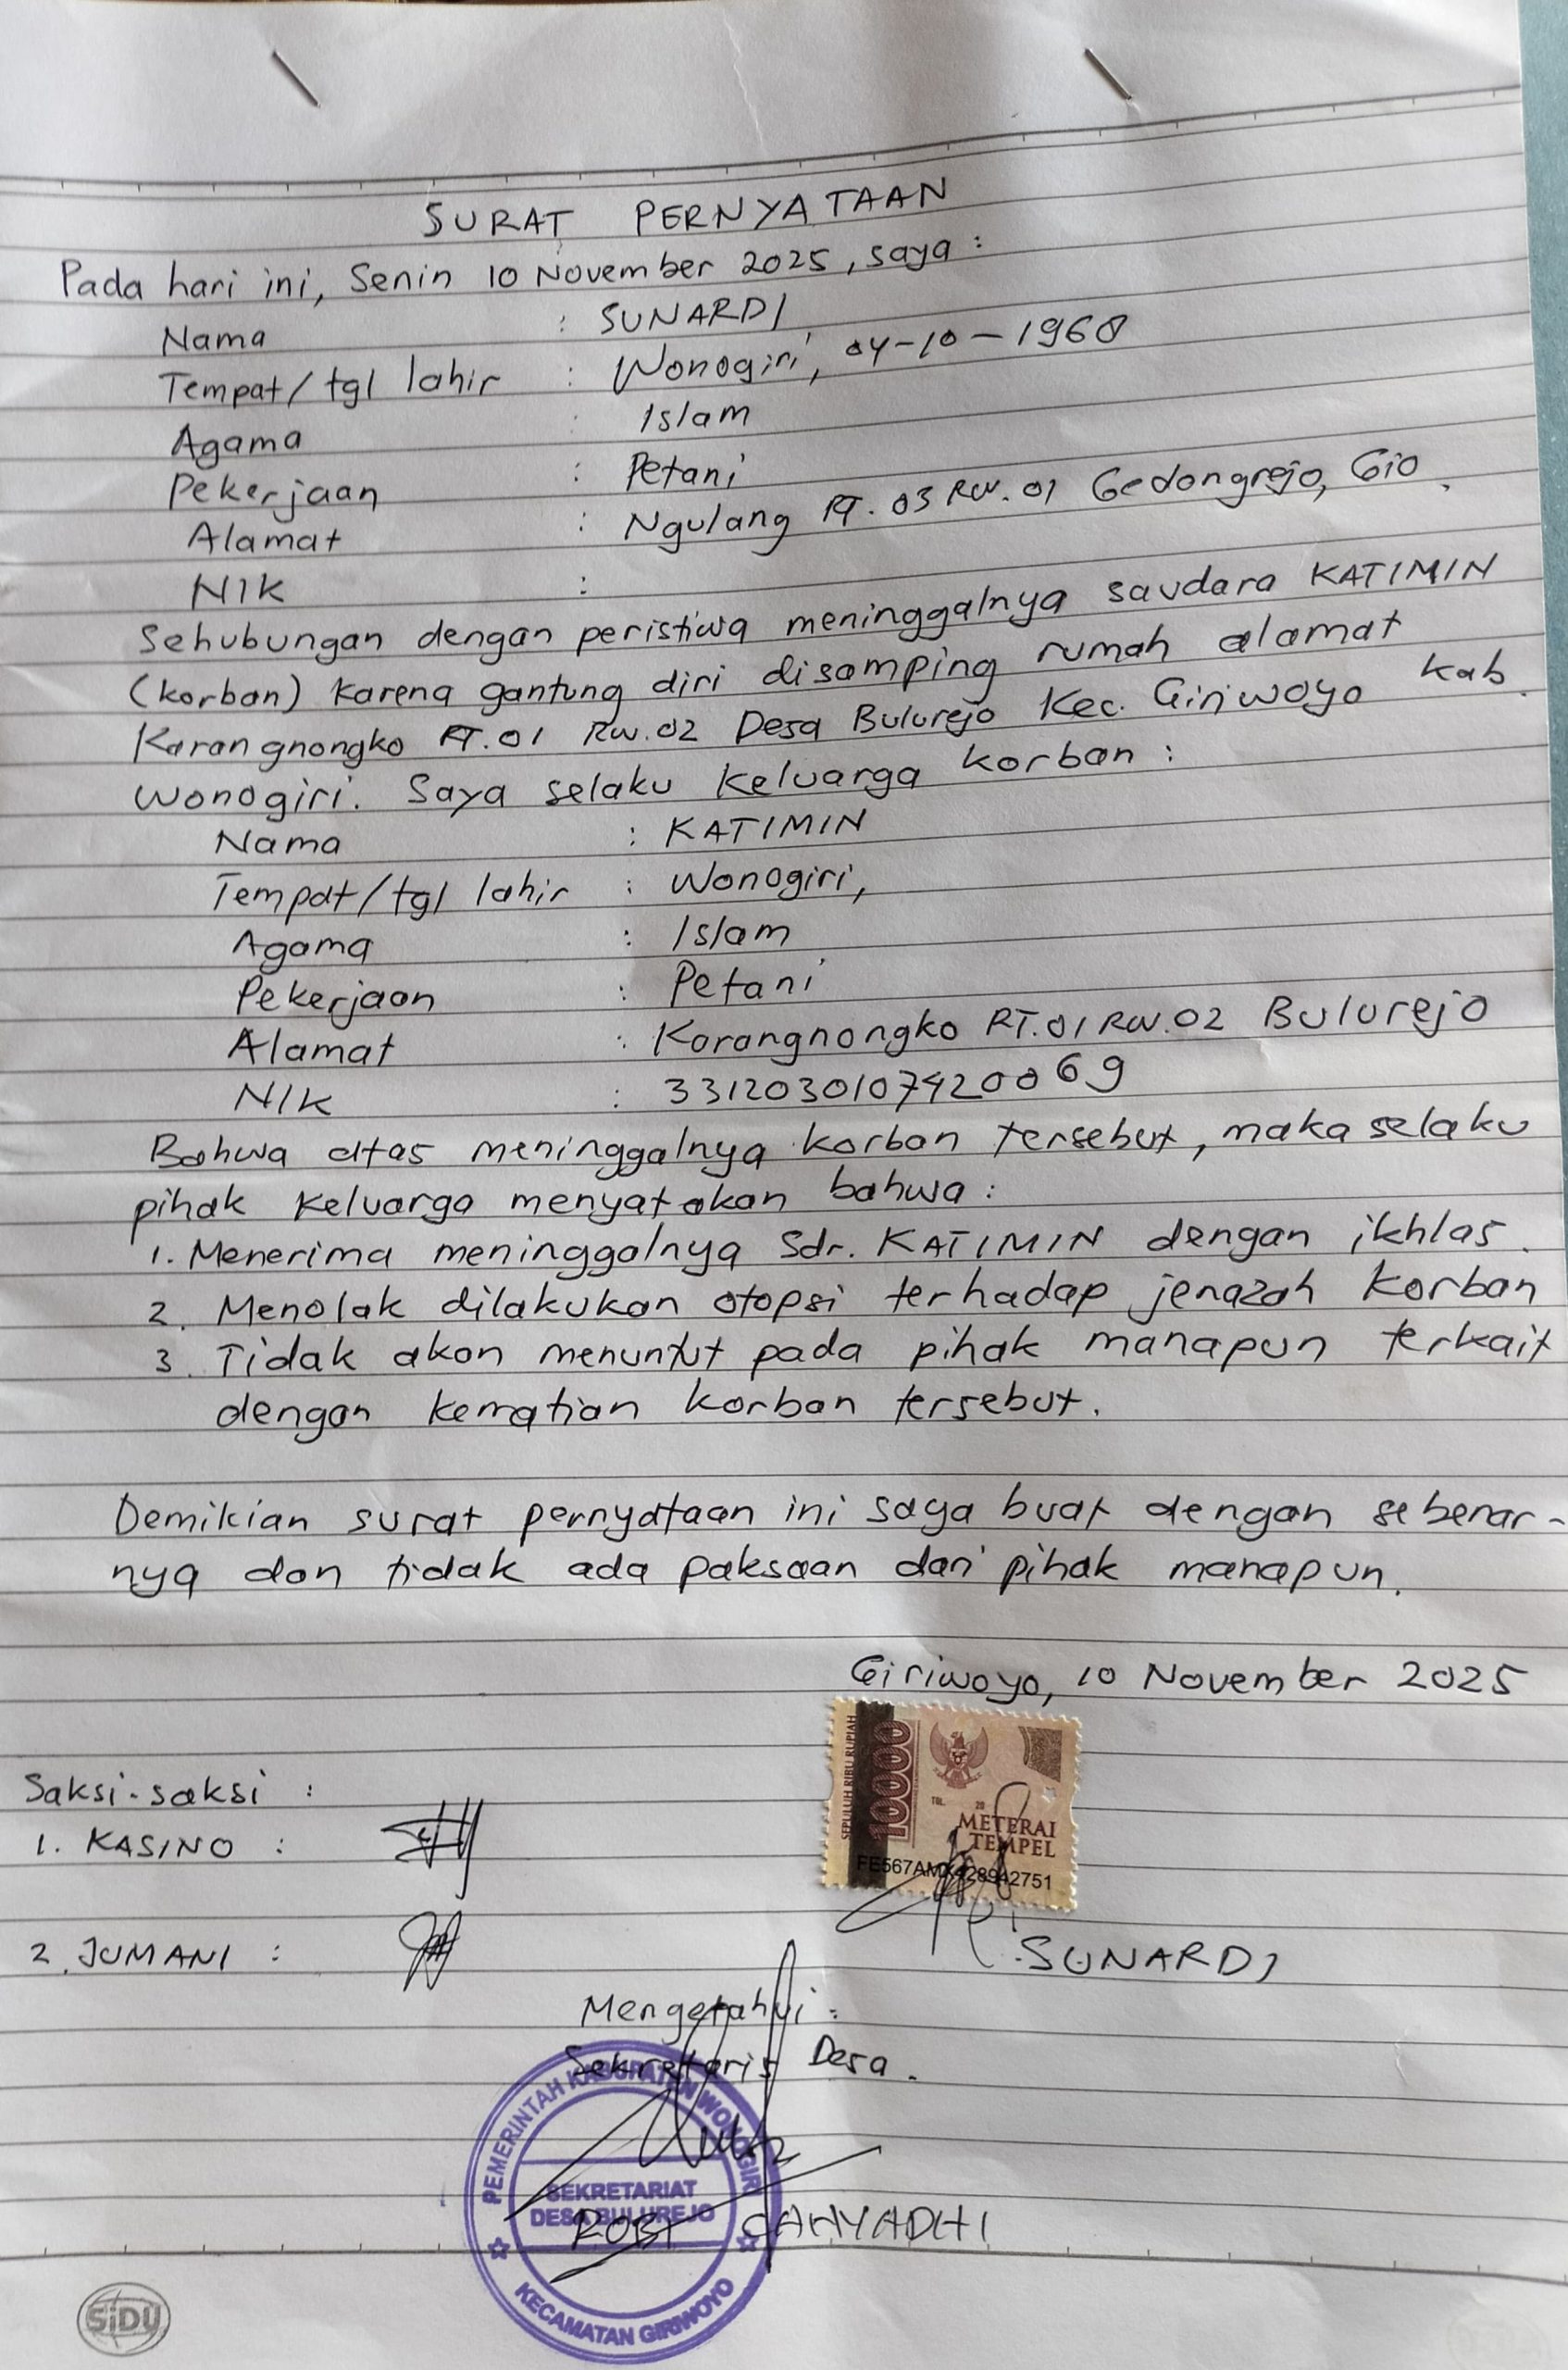 SURAT PERNYATAAN
Pada hari ini, Senin 10 November 2025, saya :
Nama : SUNARDI
Tempat/tgl lahir : Wonogiri, 04-10-1968
Agama : Islam
Pekerjaan : Petani
Alamat : Ngulang RT. 03 RW. 01 Gedongrejo, Gio.
NIK :
Sehubungan dengan peristiwa meninggalnya saudara KATIMIN
(korban) karena gantung diri disamping rumah alamat
Karangnongko RT.01 RW.02 Desa Bulurejo Kec. Giriwoyo Kab.
Wonogiri. Saya selaku keluarga korban :
Nama : KATIMIN
Tempat/tgl lahir : Wonogiri,
Agama : Islam
Pekerjaan : Petani
Alamat : Karangnongko RT.01 RW.02 Bulurejo
NIK : 3312030107420069
Bahwa atas meninggalnya korban tersebut, maka selaku
pihak keluarga menyatakan bahwa :
1. Menerima meninggalnya Sdr. KATIMIN dengan ikhlas.
2. Menolak dilakukan otopsi terhadap jenazah korban
3. Tidak akan menuntut pada pihak manapun terkait
dengan kematian korban tersebut.
Demikian surat pernyataan ini saya buat dengan sebenar-
nya dan tidak ada paksaan dari pihak manapun.
Giriwoyo, 10 November 2025
SEPULUH RIBU RUPIAH
10000
TGL. 20
METERAI
TEMPEL
FE567AMX428942751
Saksi-saksi :
1. KASINO :
2. JUMANI :
SUNARDI
Mengetahui :
Sekretaris Desa.
PEMERINTAH KABUPATEN WONOGIRI
SEKRETARIAT
DESA BULUREJO
KECAMATAN GIRIWOYO
ROBI CAHYADHI
SiDU